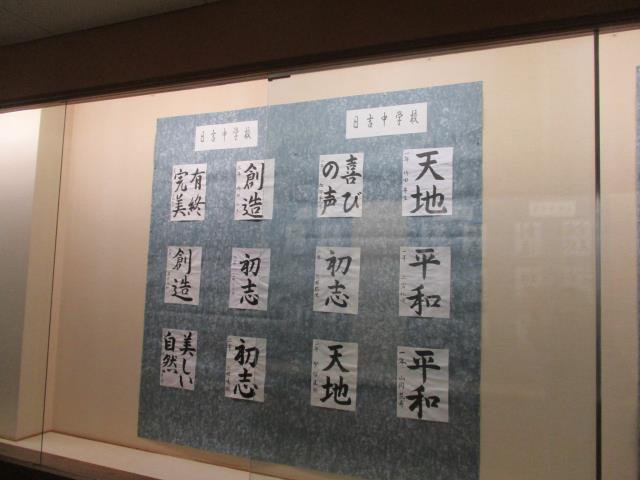 日吉中学校
天地
喜びの声
平和
初志
一年
平和
天地
日吉中学校
創造
有終完美
初志
創造
初志
美しい自然